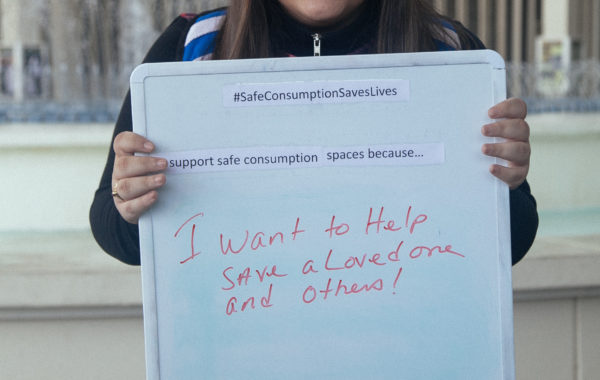 #SafeConsumptionSavesLives
support safe consumption spaces because...
I want to Help
SAve a Loved one
and others!